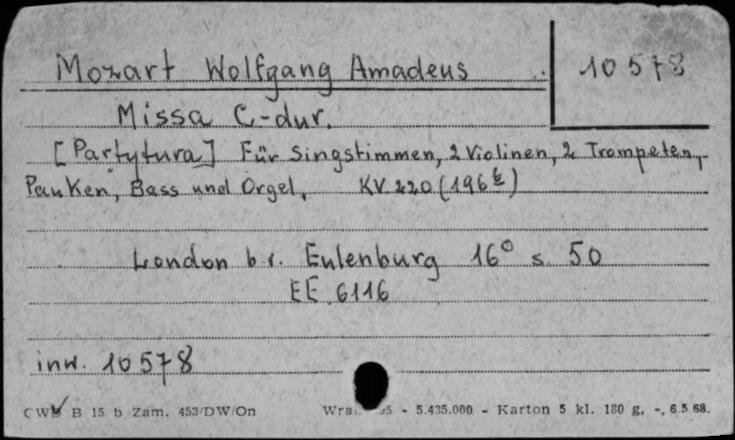 Mozart Wolfgang Amadeus 10578
Missa C-dur.
[Partytura] Für Singstimmen, 2 Violinen, 2 Trompeten,
Pauken, Bass und Orgel, KV 220 (196b)
London b.r. Eulenburg 16° s. 50
EE 6116
inw. 10578
CWD B 15 b Zam. 453/DW/On - 5.435.000 - Karton 5 kl. 180 g. -, 6.5.68.